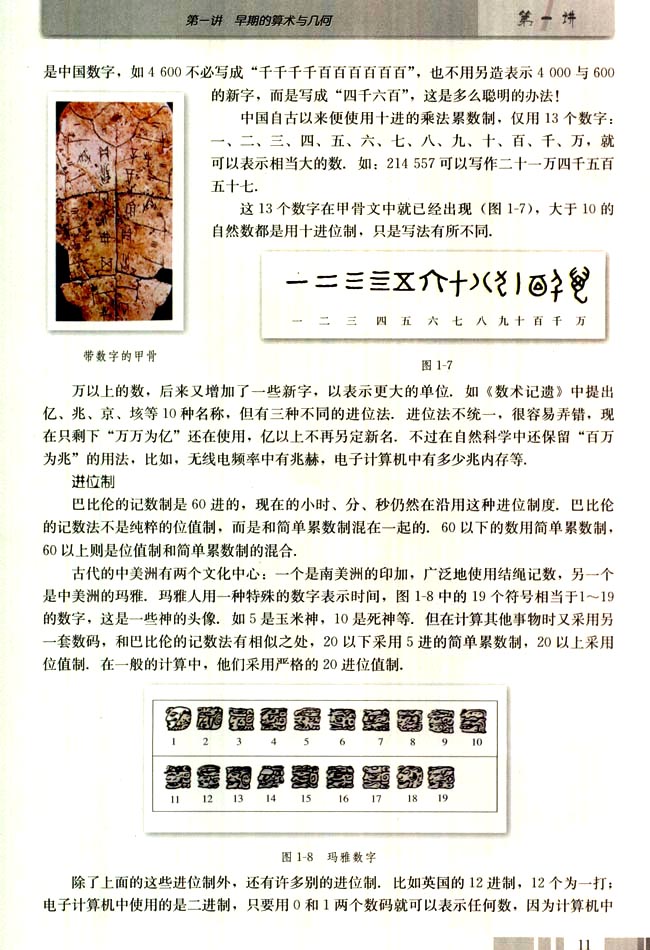 第一讲 早期的算术与几何
第一讲
是中国数字，如4 600不必写成“千千千千百百百百百百”，也不用另造表示4 000与600
的新字，而是写成“四千六百”，这是多么聪明的办法！
中国自古以来便使用十进的乘法累数制，仅用13个数字：
一、二、三、四、五、六、七、八、九、十、百、千、万，就
可以表示相当大的数．如：214 557可以写作二十一万四千五百
五十七．
这13个数字在甲骨文中就已经出现（图1-7），大于10的
自然数都是用十进位制，只是写法有所不同．
一 二 三 四 五 六 七 八 九 十 百 千 万
带数字的甲骨
图1-7
万以上的数，后来又增加了一些新字，以表示更大的单位．如《数术记遗》中提出
亿、兆、京、垓等10种名称，但有三种不同的进位法．进位法不统一，很容易弄错，现
在只剩下“万万为亿”还在使用，亿以上不再另定新名．不过在自然科学中还保留“百万
为兆”的用法，比如，无线电频率中有兆赫，电子计算机中有多少兆内存等．
进位制
巴比伦的记数制是60进的，现在的小时、分、秒仍然在沿用这种进位制度．巴比伦
的记数法不是纯粹的位值制，而是和简单累数制混在一起的．60以下的数用简单累数制，
60以上则是位值制和简单累数制的混合．
古代的中美洲有两个文化中心：一个是南美洲的印加，广泛地使用结绳记数，另一个
是中美洲的玛雅．玛雅人用一种特殊的数字表示时间，图1-8中的19个符号相当于1～19
的数字，这是一些神的头像．如5是玉米神，10是死神等．但在计算其他事物时又采用另
一套数码，和巴比伦的记数法有相似之处，20以下采用5进的简单累数制，20以上采用
位值制．在一般的计算中，他们采用严格的20进位值制．
1 2 3 4 5 6 7 8 9 10
11 12 13 14 15 16 17 18 19
图1-8 玛雅数字
除了上面的这些进位制外，还有许多别的进位制．比如英国的12进制，12个为一打；
电子计算机中使用的是二进制，只要用0和1两个数码就可以表示任何数，因为计算机中
11